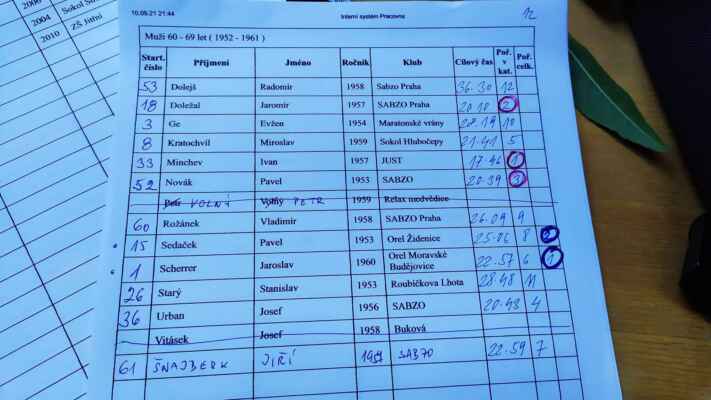 2006
2004 Sokol
2010 ZŠ Jižní
10.09.21 21:44 Interní systém Pracovna 12
Muži 60 - 69 let ( 1952 - 1961 )
Start. číslo Příjmení Jméno Ročník Klub Cílový čas Poř. v kat. Poř. celk.
53 Dolejš Radomír 1958 Sabzo Praha 36.30 12
18 Doležal Jaromír 1957 SABZO Praha 20.10 2
3 Ge Evžen 1954 Maratonské vrány 28.19 10
8 Kratochvíl Miroslav 1959 Sokol Hlubočepy 21.41 5
33 Minchev Ivan 1957 JUST 17.46 1
52 Novák Pavel 1953 SABZO 20.39 3
Petr VOLNÝ Volný PETR 1959 Relax medvědice
60 Rožánek Vladimír 1958 SABZO Praha 26.09 9
15 Sedaček Pavel 1953 Orel Židenice 25.06 8 2
1 Scherrer Jaroslav 1960 Orel Moravské Budějovice 22.57 6 1
26 Starý Stanislav 1953 Roubíčkova Lhota 28.48 11
36 Urban Josef 1956 SABZO 20.43 4
Vitásek Josef 1958 Buková
61 ŠNAJBERK JIŘÍ SABZO 22.59 7